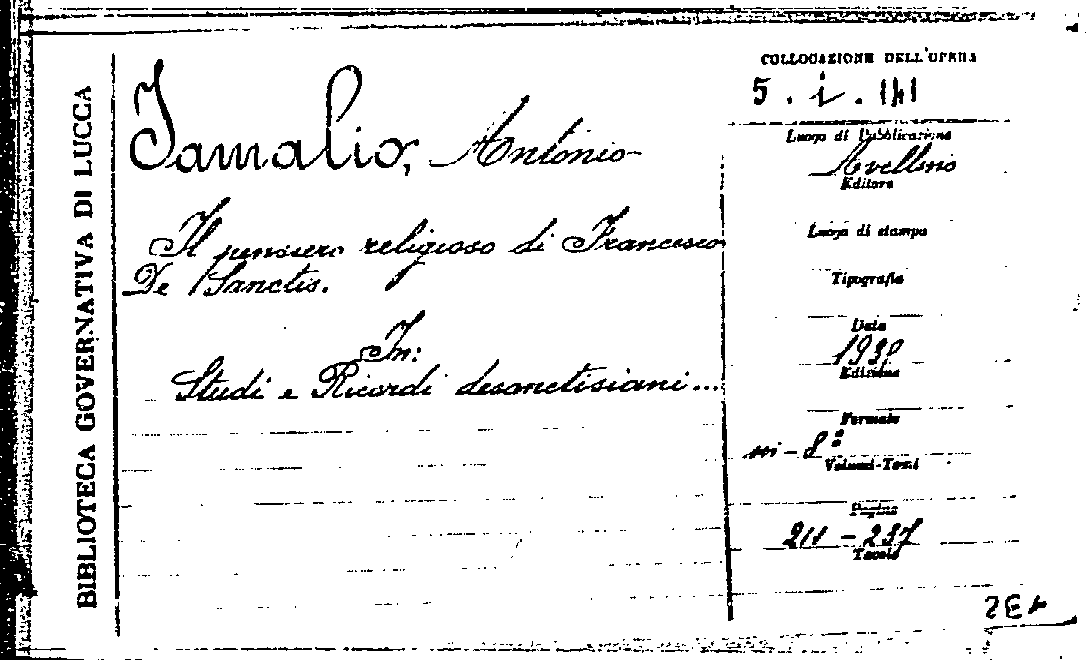 BIBLIOTECA GOVERNATIVA DI LUCCA
Iamalio, Antonio
Il pensiero religioso di Francesco
De Sanctis.
In:
Studi e Ricordi desanctisiani...
COLLOCAZIONE DELL'OPERA
5. i. 141
Luogo di Pubblicazione
Avellino
Editore
Luogo di stampa
Tipografia
Data
Edizione
Formato
in-8°
Volumi-Tomi
Pagine
211-237
Tavole